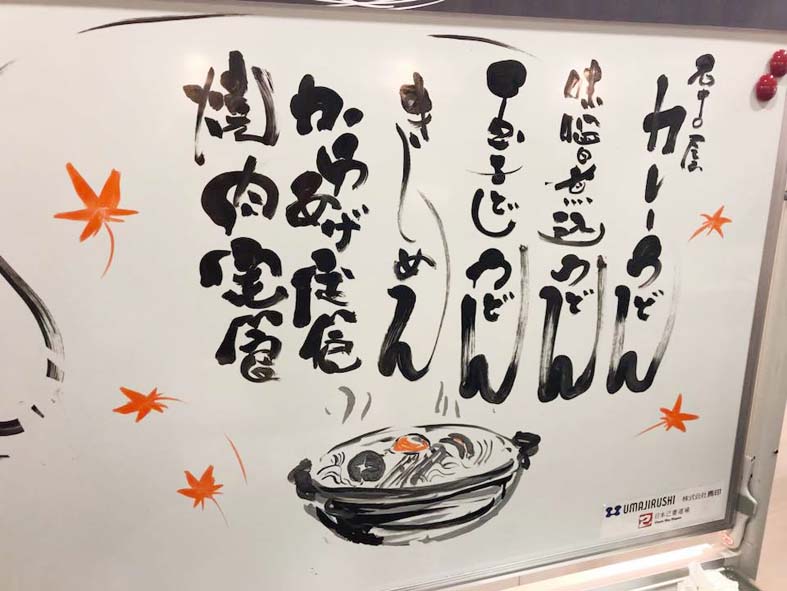 名古屋
カレーうどん
味噌煮込うどん
玉子とじうどん
きしめん
からあげ定食
焼肉定食
UMAJIRUSHI 株式会社馬印
日本己書道場